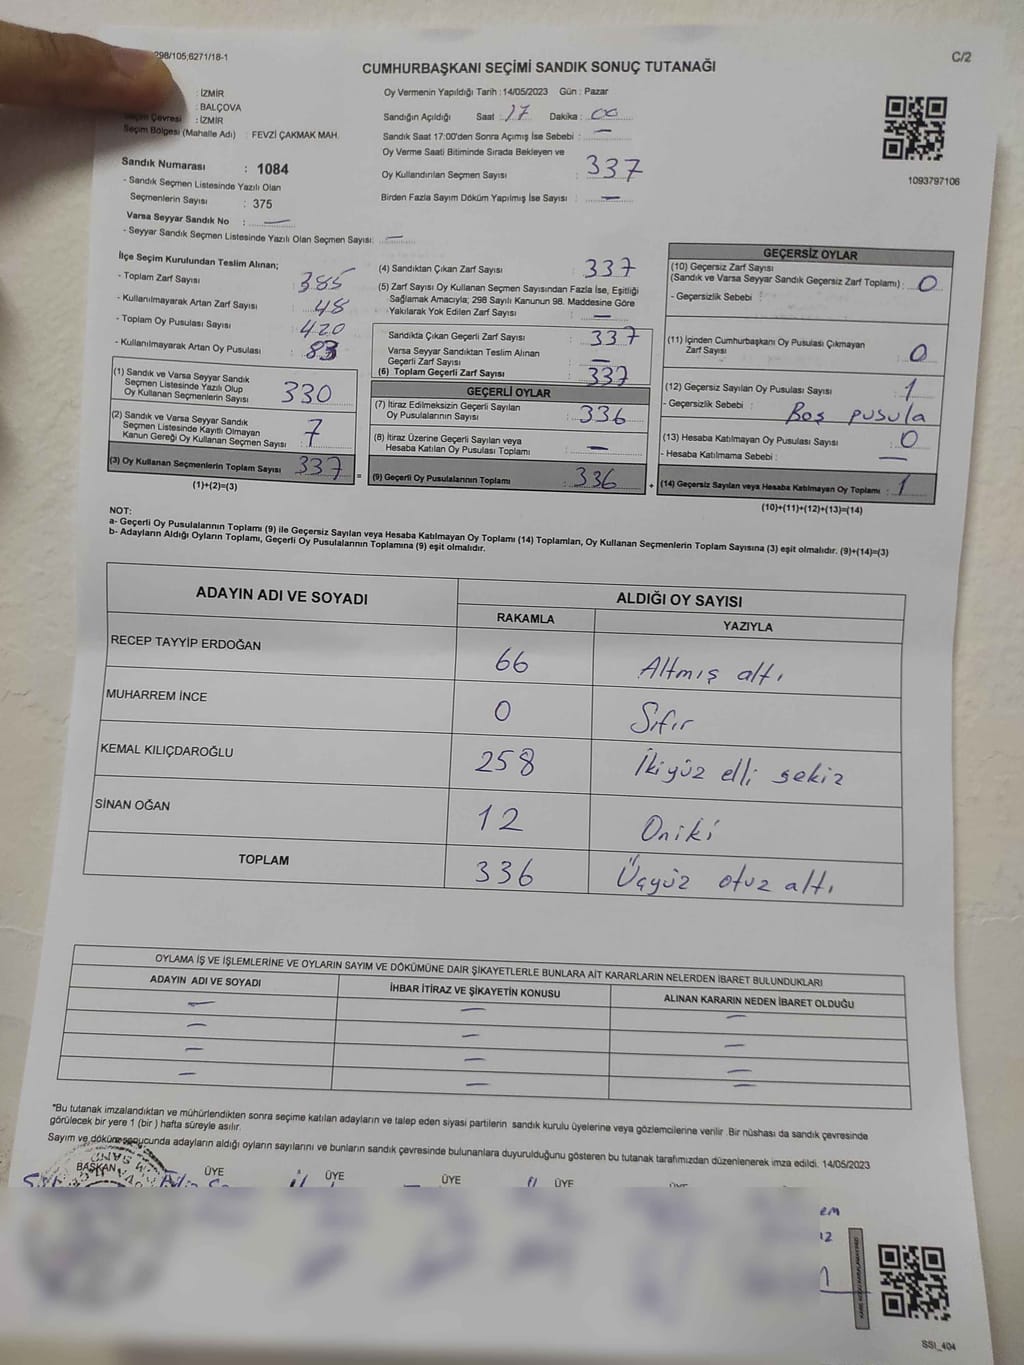 298/105,6271/18-1
C/2
CUMHURBAŞKANI SEÇİMİ SANDIK SONUÇ TUTANAĞI
: İZMİR
: BALÇOVA
Seçim Çevresi : İZMİR
Seçim Bölgesi (Mahalle Adı) : FEVZİ ÇAKMAK MAH.
Sandık Numarası : 1084
- Sandık Seçmen Listesinde Yazılı Olan
Seçmenlerin Sayısı : 375
Varsa Seyyar Sandık No : —
- Seyyar Sandık Seçmen Listesinde Yazılı Olan Seçmen Sayısı: —
Oy Vermenin Yapıldığı Tarih : 14/05/2023 Gün : Pazar
Sandığın Açıldığı Saat : 17 Dakika : 00
Sandık Saat 17:00'den Sonra Açımış İse Sebebi : —
Oy Verme Saati Bitiminde Sırada Bekleyen ve
Oy Kullandırılan Seçmen Sayısı : 337
Birden Fazla Sayım Döküm Yapılmış İse Sayısı : —
1093797106
İlçe Seçim Kurulundan Teslim Alınan;
- Toplam Zarf Sayısı : 385
- Kullanılmayarak Artan Zarf Sayısı : 48
- Toplam Oy Pusulası Sayısı : 420
- Kullanılmayarak Artan Oy Pusulası : 83
(1) Sandık ve Varsa Seyyar Sandık
Seçmen Listesinde Yazılı Olup
Oy Kullanan Seçmenlerin Sayısı : 330
(2) Sandık ve Varsa Seyyar Sandık
Seçmen Listesinde Kayıtlı Olmayan
Kanun Gereği Oy Kullanan Seçmen Sayısı : 7
(3) Oy Kullanan Seçmenlerin Toplam Sayısı : 337 =
(1)+(2)=(3)
(4) Sandıktan Çıkan Zarf Sayısı : 337
(5) Zarf Sayısı Oy Kullanan Seçmen Sayısından Fazla İse, Eşitliği
Sağlamak Amacıyla; 298 Sayılı Kanunun 98. Maddesine Göre
Yakılarak Yok Edilen Zarf Sayısı : —
Sandıkta Çıkan Geçerli Zarf Sayısı : 337
Varsa Seyyar Sandıktan Teslim Alınan
Geçerli Zarf Sayısı : —
(6) Toplam Geçerli Zarf Sayısı : 337
GEÇERLİ OYLAR
(7) İtiraz Edilmeksizin Geçerli Sayılan
Oy Pusulalarının Sayısı : 336
(8) İtiraz Üzerine Geçerli Sayılan veya
Hesaba Katılan Oy Pusulası Toplamı : —
(9) Geçerli Oy Pusulalarının Toplamı : 336 +
GEÇERSİZ OYLAR
(10) Geçersiz Zarf Sayısı
(Sandık ve Varsa Seyyar Sandık Geçersiz Zarf Toplamı) : 0
- Geçersizlik Sebebi :
(11) İçinden Cumhurbaşkanı Oy Pusulası Çıkmayan
Zarf Sayısı : 0
(12) Geçersiz Sayılan Oy Pusulası Sayısı : 1
- Geçersizlik Sebebi : Boş pusula
(13) Hesaba Katılmayan Oy Pusulası Sayısı : 0
- Hesaba Katılmama Sebebi : —
(14) Geçersiz Sayılan veya Hesaba Katılmayan Oy Toplamı : 1
(10)+(11)+(12)+(13)=(14)
NOT:
a- Geçerli Oy Pusulalarının Toplamı (9) ile Geçersiz Sayılan veya Hesaba Katılmayan Oy Toplamı (14) Toplamları, Oy Kullanan Seçmenlerin Toplam Sayısına (3) eşit olmalıdır. (9)+(14)=(3)
b- Adayların Aldığı Oyların Toplamı, Geçerli Oy Pusulalarının Toplamına (9) eşit olmalıdır.
ADAYIN ADI VE SOYADI ALDIĞI OY SAYISI
RAKAMLA YAZIYLA
RECEP TAYYİP ERDOĞAN 66 Altmış altı
MUHARREM İNCE 0 Sıfır
KEMAL KILIÇDAROĞLU 258 İkiyüz elli sekiz
SİNAN OĞAN 12 Oniki
TOPLAM 336 Üçyüz otuz altı
OYLAMA İŞ VE İŞLEMLERİNE VE OYLARIN SAYIM VE DÖKÜMÜNE DAİR ŞİKAYETLERLE BUNLARA AİT KARARLARIN NELERDEN İBARET BULUNDUKLARI
ADAYIN ADI VE SOYADI İHBAR İTİRAZ VE ŞİKAYETİN KONUSU ALINAN KARARIN NEDEN İBARET OLDUĞU
— — —
— — —
— — —
— — —
*Bu tutanak imzalandıktan ve mühürlendikten sonra seçime katılan adayların ve talep eden siyasi partilerin sandık kurulu üyelerine veya gözlemcilerine verilir .Bir nüshası da sandık çevresinde
görülecek bir yere 1 (bir ) hafta süreyle asılır.
Sayım ve döküm sonucunda adayların aldığı oyların sayılarını ve bunların sandık çevresinde bulunanlara duyurulduğunu gösteren bu tutanak tarafımızdan düzenlenerek imza edildi. 14/05/2023
BAŞKAN ÜYE ÜYE ÜYE ÜYE ÜYE
SSİ_404